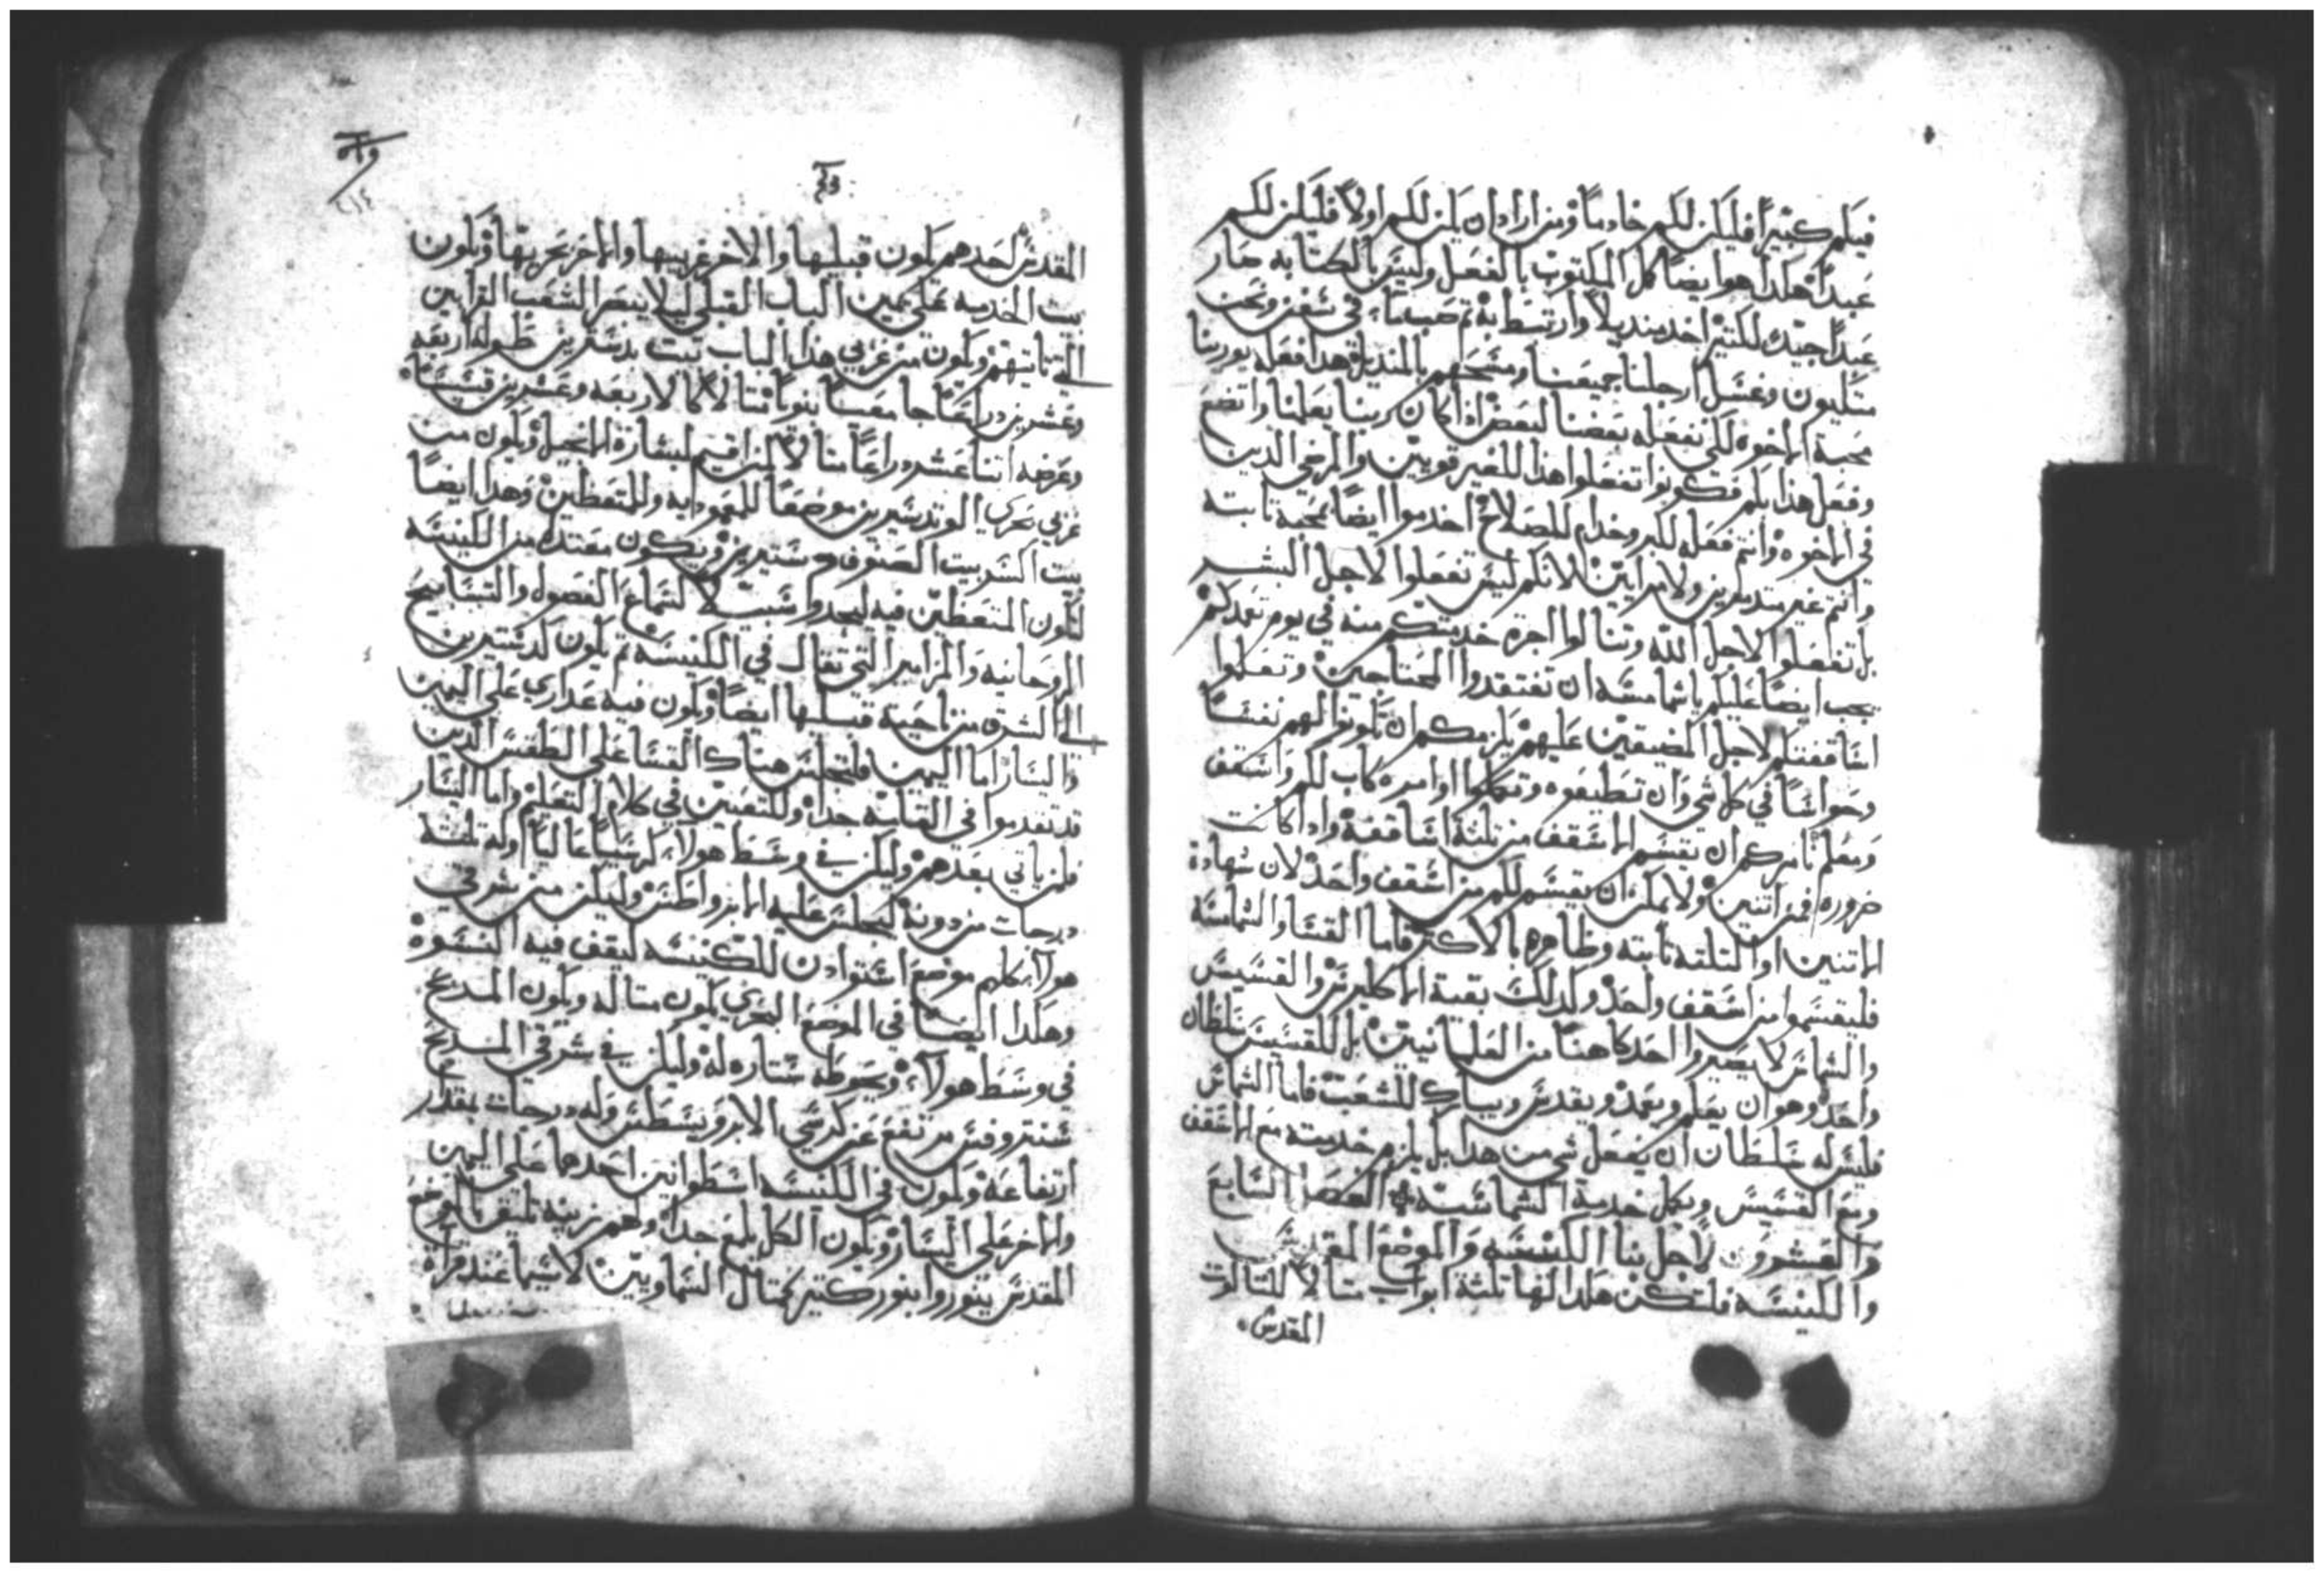 فيكم كبيراً فليكن لكم خادماً ومن اراد ان يكن لكم اولاً فليكن لكم
عبداً هكذا هو ايضاً كمل المكتوب بالفعل وليس بالكتابه صار
عبداً جيداً لكثير اخد منديلاً وارتبط به ثم صب ماء في شقف ونحن
متكيون وغسل ارجلنا جميعنا ومسحهم بالمنديل هذا فعله يورينا
محبة الاخوه لكي نفعله بعضنا لبعض اذا كان ربنا يعلمنا واتضع
وفعل هذا بكم فكونوا تفعلوا هذا للغير قويين والمرضي الدين
في الاخوه وانتم فعله للبر وخدام للصلاح اخدموا ايضاً بمحبة ثابته
وانتم غير متدمرين ولا مرايين لانكم ليس تفعلوا لاجل البشر
بل تفعلوا لاجل الله وتنالوا اجرة خدمتكم منه في يوم تعمدكم
يجب ايضاً عليكم ياشمامسه ان تفتقدوا المحتاجين وتعلموا
اساقفتكم لاجل المضيقين عليهم يلزمكم ان تكونوا لهم نفساً
وحواساً في كل شي وان تطيعوه وتكملوا اوامره كاب لكم واسقف
ومعلم نامركم ان يقسم الاسقف من تلتة اساقفة واذا كانت
ضروره فمن اتنين ولا يمكن ان يقسم لكم من اسقف واحد لان شهادة
الاتنين او التلته تابته وظاهره بالاكتر فاما القسا والشمامسه
فليقسموا من اسقف واحد وكدلك بقية الاكليرس والقسيس
والشماس لا يصيروا احد كاهناً من العلمانيين بل للقسيس سلطان
واحد وهو ان يعلم ويعمد ويقدس ويبارك للشعب فاما الشماس
فليس له سلطان ان يفعل شي من هذا بل يلزم خدمته مع الاسقف
ومع القسيس ويكمل خدمة الشماسية الفصل السابع
والعشرون لاجل بنا الكنيسه والموضع المقدس
والكنيسه فلتكن هكدا لها تلتة ابواب مثالاً للتالوت
المقدس
المقدس احدهم يكون قبليها والاخر غربيها والاخر بحريها ويكون
بيت الخدمه على يمين الباب القبلي ليلا ينظر الشعب القرابين
التي تاتيهم ويكون من غربي هذا الباب بيت طوله اربعه
وعشرين دراعاً مثالاً لاربعه وعشرين قسيساً
وعرضه اتنا عشر دراعاً مثالاً لبشارة الانجيل ويكون من
غربي بحري موضعاً للمعموديه وللمتعظين وهذا ايضاً
بيت السر بيت الصنوف ويكون مقتدا من الكنيسه
لتكون المتعظين فيه ليجدوا سبيلاً لسماع الفصول والتسابيح
الروحانيه والمزامير التي تقال في الكنيسه ثم يكون
الى الشرق من ناحية قبليها ايضاً ويكون فيه على اليمين
واليسار اما اليمين فلتجلس هناك القسا على الطقس الدين
قد تقدموا في القامة جداً وللتعبين في كلام التعليم واما اليسار
فلمن ياتي بعدهم وليكن في وسط هولا كرسياً عالياً وله تلتة
درجات من دونه ليجلس عليه وليكن من شرقي
هولا كلهم موضع للكنيسه ليقف فيه النسوه
وهكدا ايضاً في الموضع البحري يكون مثاله ويكون المدبح
في وسط هولا ويحوطه ستاره له وليكن في شرقي المدبح
مرتفع عن كرسي وله درجات بمقدار
ارتفاعه ويكون في الكنيسه اسطوانين احدهما على اليمين
والاخر على اليسار ويكون الكل يلمع جداً ولهم زينه تليق بالموضع
المقدس ينوروا بنور كتير كمثال السماويين لاسيما عند قراة